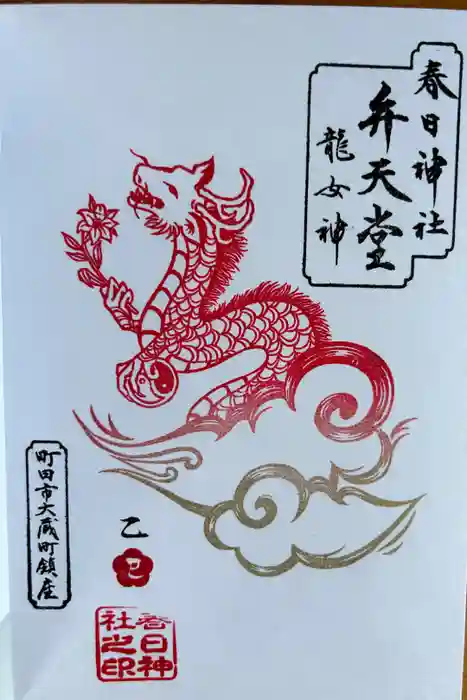 春日神社
弁天堂
龍女神
町田市大蔵町鎮座
乙
巳
春日神
社之印